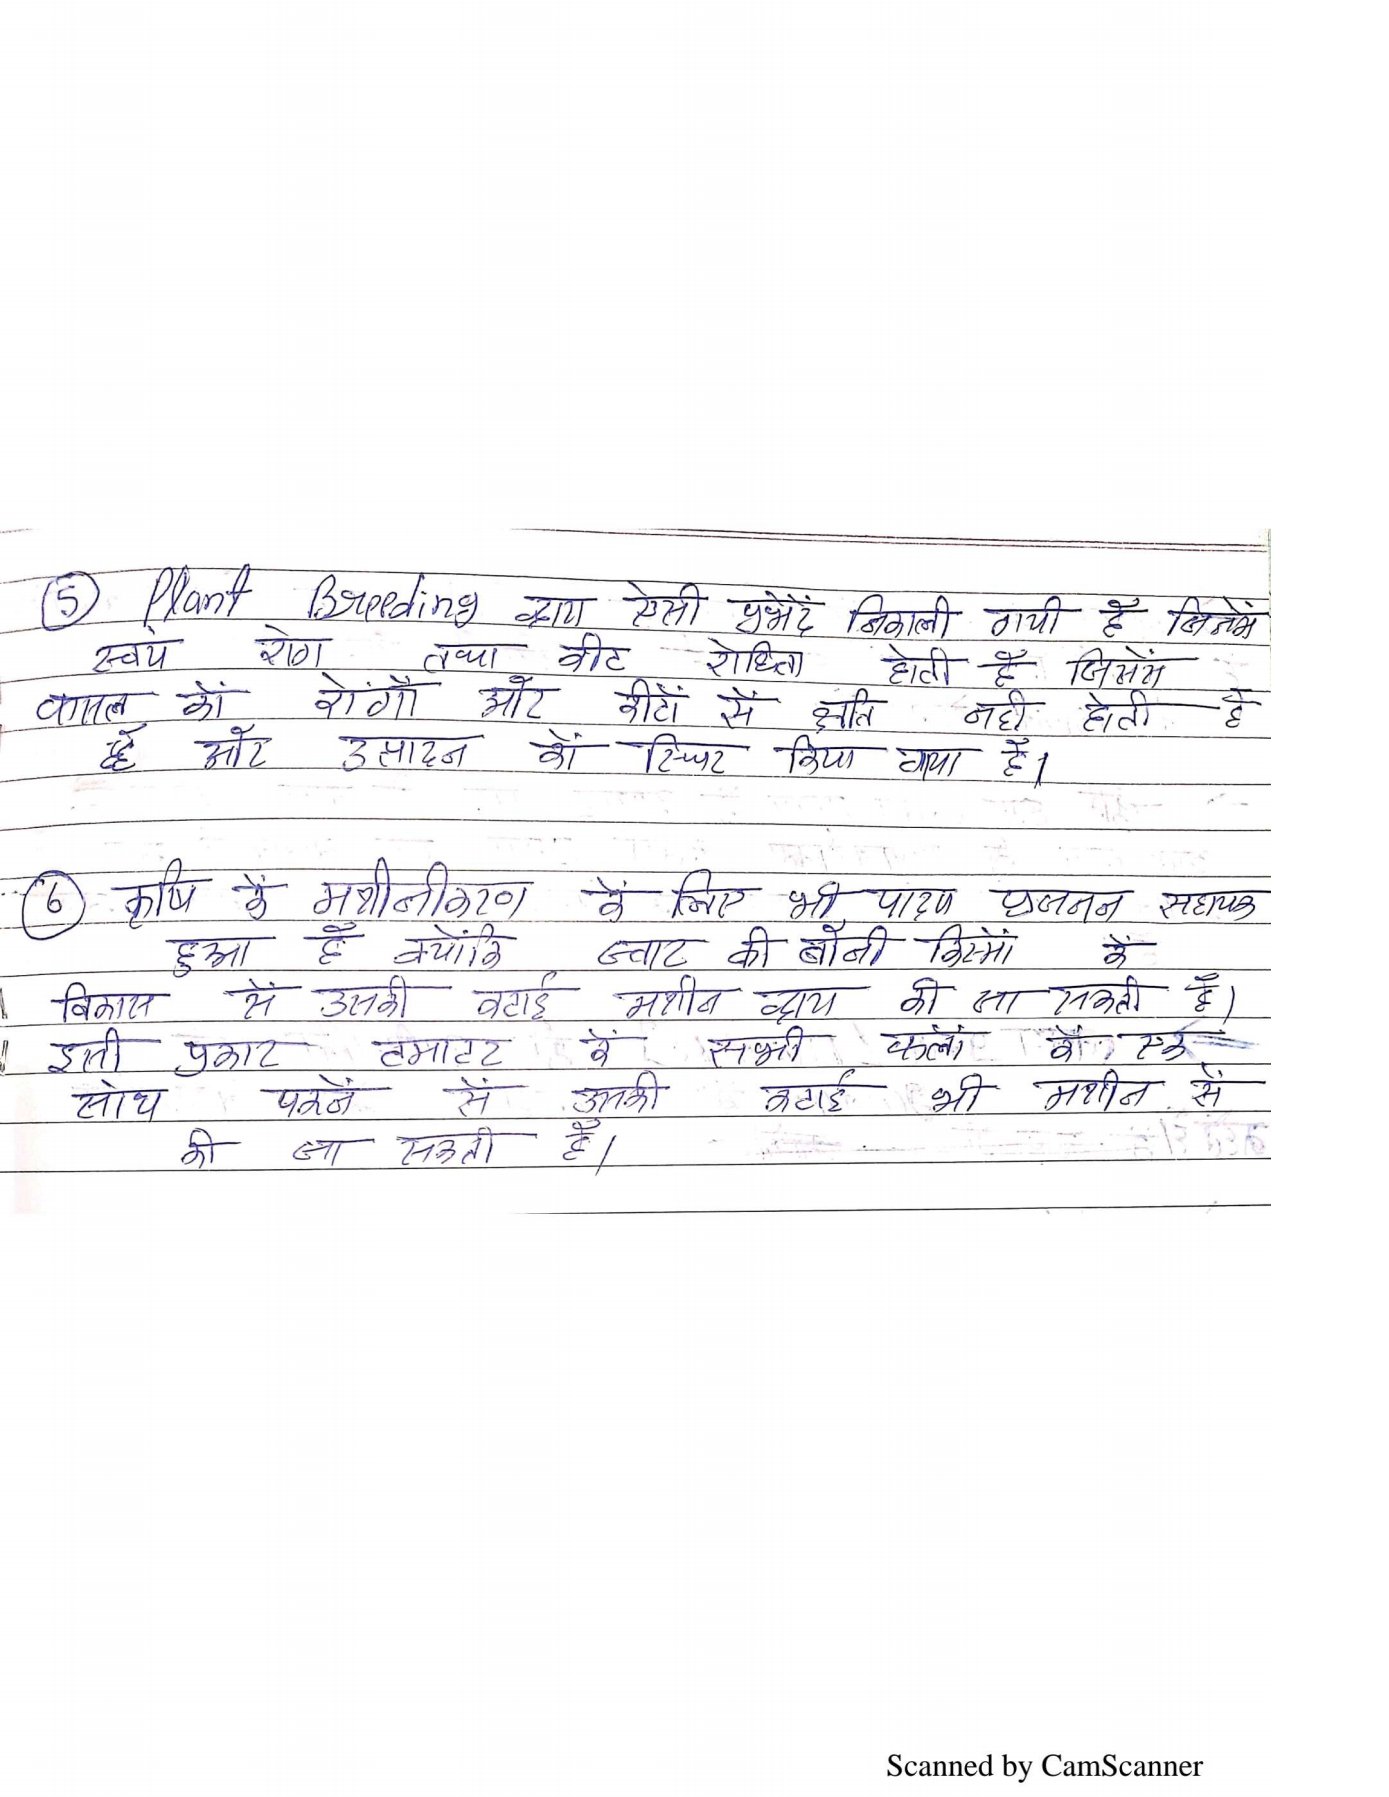 ⑤ Plant Breeding द्वारा ऐसी प्रभेदें निकाली गयी हैं जिनमें
स्वयं रोग तथा कीट रोधिता होती हैं जिसमें
फसल कों रोगों और कीटों सें क्षति नही होती है
हैं और उत्पादन कों स्थिर किया गया हैं।
⑥ कृषि कें मशीनीकरण कें लिए भी पादप प्रजनन सहायक
हुआ हैं क्योंकि ज्वार की बौंनी किस्मों कें
विकास सें उसकी कटाई मशीन द्वारा की जा सकती हैं।
इसी प्रकार टमाटर कें सभी फलों कें एक
साथ पकनें सें उसकी कटाई भी मशीन सें
की जा सकती हैं।
Scanned by CamScanner